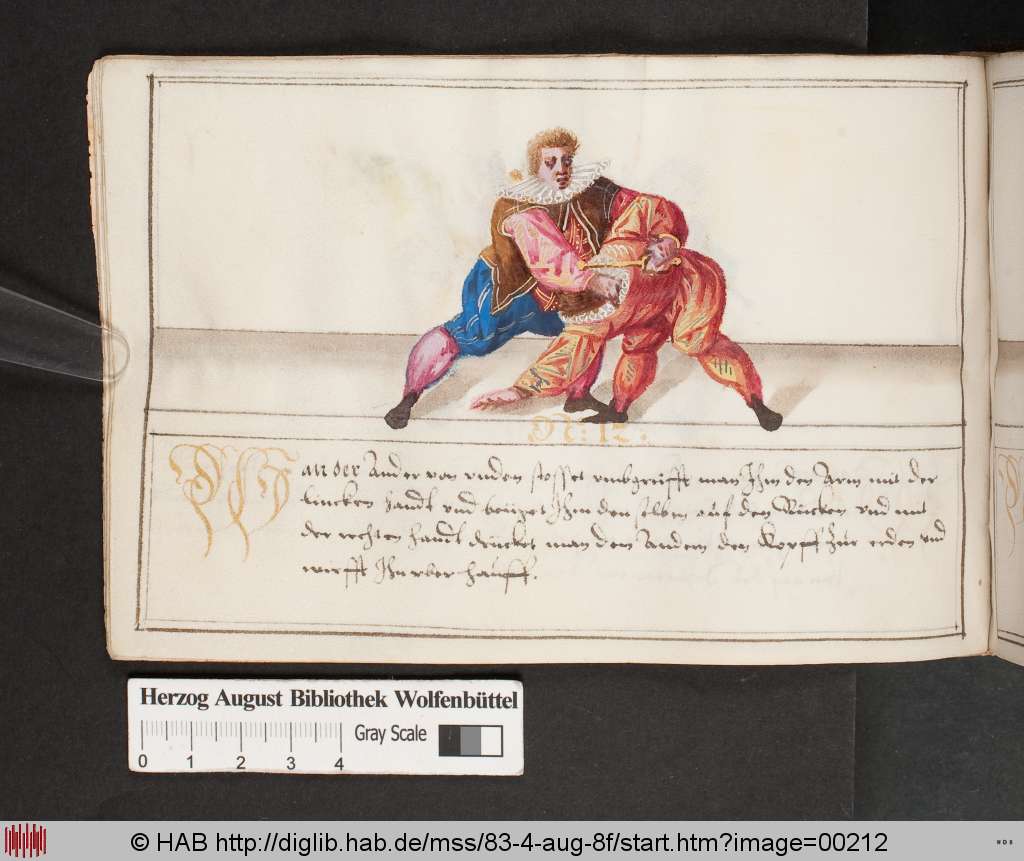 N: 12.
Wan der Ander von unden stosset umbgreifft man Ihm den Arm mit der
lincken handt und beuget Ihm denselben auf den Rücken und mit
der rechten handt drücket man dem Andern den Kopff zur erden und
wirfft Ihn uber hauff.
Herzog August Bibliothek Wolfenbüttel
Gray Scale
0 1 2 3 4
© HAB http://diglib.hab.de/mss/83-4-aug-8f/start.htm?image=00212